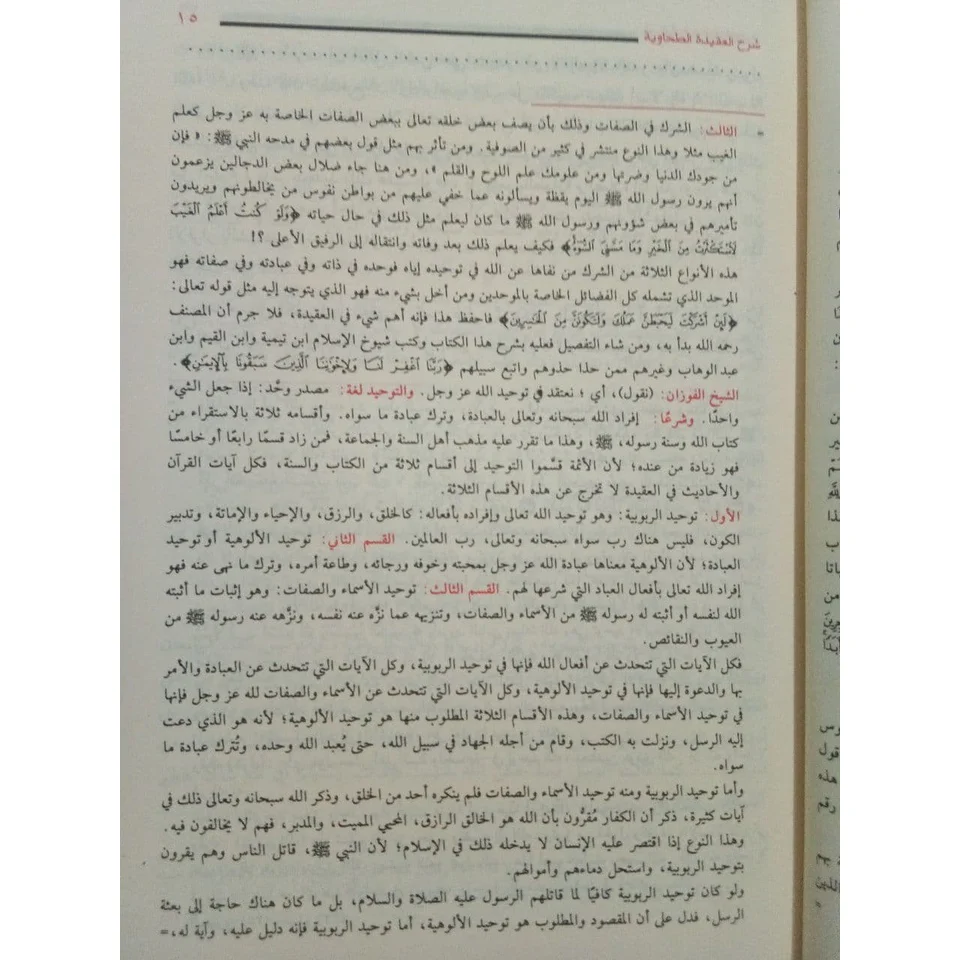 شرح العقيدة الطحاوية ١٥
= الثالث: الشرك في الصفات وذلك بأن يصف بعض خلقه تعالى ببعض الصفات الخاصة به عز وجل كعلم
الغيب مثلا وهذا النوع منتشر في كثير من الصوفية. ومن تأثر بهم مثل قول بعضهم في مدحه النبي ﷺ: « فإن
من جودك الدنيا وضرتها ومن علومك علم اللوح والقلم »، ومن هنا جاء ضلال بعض الدجالين يزعمون
أنهم يرون رسول الله ﷺ اليوم يقظة ويسألونه عما خفي عليهم من بواطن نفوس من يخالطونهم ويريدون
تأميرهم في بعض شؤونهم ورسول الله ﷺ ما كان ليعلم مثل ذلك في حال حياته ﴿وَلَوْ كُنتُ أَعْلَمُ الْغَيْبَ
لَاسْتَكْثَرْتُ مِنَ الْخَيْرِ وَمَا مَسَّنِيَ السُّوءُ﴾ فكيف يعلم ذلك بعد وفاته وانتقاله إلى الرفيق الأعلى ؟!
هذه الأنواع الثلاثة من الشرك من نفاها عن الله في توحيده إياه فوحده في ذاته وفي عبادته وفي صفاته فهو
الموحد الذي تشمله كل الفضائل الخاصة بالموحدين ومن أخل بشيء منه فهو الذي يتوجه إليه مثل قوله تعالى:
﴿لَئِنْ أَشْرَكْتَ لَيَحْبَطَنَّ عَمَلُكَ وَلَتَكُونَنَّ مِنَ الْخَاسِرِينَ﴾ فاحفظ هذا فإنه أهم شيء في العقيدة، فلا جرم أن المصنف
رحمه الله بدأ به، ومن شاء التفصيل فعليه بشرح هذا الكتاب وكتب شيوخ الإسلام ابن تيمية وابن القيم وابن
عبد الوهاب وغيرهم ممن حذا حذوهم واتبع سبيلهم ﴿رَبَّنَا اغْفِرْ لَنَا وَلِإِخْوَانِنَا الَّذِينَ سَبَقُونَا بِالْإِيمَنِ﴾.
الشيخ الفوزان: (نقول)، أي ؛ نعتقد في توحيد الله عز وجل. والتوحيد لغة: مصدر وحَّد: إذا جعل الشيء
واحدًا. وشرعًا: إفراد الله سبحانه وتعالى بالعبادة، وترك عبادة ما سواه. وأقسامه ثلاثة بالاستقراء من
كتاب الله وسنة رسوله، ﷺ، وهذا ما تقرر عليه مذهب أهل السنة والجماعة، فمن زاد قسمًا رابعًا أو خامسًا
فهو زيادة من عنده؛ لأن الأئمة قسَّموا التوحيد إلى أقسام ثلاثة من الكتاب والسنة، فكل آيات القرآن
والأحاديث في العقيدة لا تخرج عن هذه الأقسام الثلاثة.
الأول: توحيد الربوبية: وهو توحيد الله تعالى وإفراده بأفعاله: كالخلق، والرزق، والإحياء والإماتة، وتدبير
الكون، فليس هناك رب سواه سبحانه وتعالى، رب العالمين. القسم الثاني: توحيد الألوهية أو توحيد
العبادة؛ لأن الألوهية معناها عبادة الله عز وجل بمحبته وخوفه ورجائه، وطاعة أمره، وترك ما نهى عنه فهو
إفراد الله تعالى بأفعال العباد التي شرعها لهم. القسم الثالث: توحيد الأسماء والصفات: وهو إثبات ما أثبته
الله لنفسه أو أثبته له رسوله ﷺ من الأسماء والصفات، وتنزيهه عما نزَّه عنه نفسه، ونزَّهه عنه رسوله ﷺ من
العيوب والنقائص.
فكل الآيات التي تتحدث عن أفعال الله فإنها في توحيد الربوبية، وكل الآيات التي تتحدث عن العبادة والأمر
بها والدعوة إليها فإنها في توحيد الألوهية، وكل الآيات التي تتحدث عن الأسماء والصفات لله عز وجل فإنها
في توحيد الأسماء والصفات، وهذه الأقسام الثلاثة المطلوب منها هو توحيد الألوهية؛ لأنه هو الذي دعت
إليه الرسل، ونزلت به الكتب، وقام من أجله الجهاد في سبيل الله، حتى يُعبد الله وحده، وتُترك عبادة ما
سواه.
وأما توحيد الربوبية ومنه توحيد الأسماء والصفات فلم ينكره أحد من الخلق، وذكر الله سبحانه وتعالى ذلك في
آيات كثيرة، ذكر أن الكفار مُقرُّون بأن الله هو الخالق الرازق، المحيي المميت، والمدبر، فهم لا يخالفون فيه.
وهذا النوع إذا اقتصر عليه الإنسان لا يدخله ذلك في الإسلام؛ لأن النبي ﷺ، قاتل الناس وهم يقرون
بتوحيد الربوبية، واستحل دماءهم وأموالهم.
ولو كان توحيد الربوبية كافيًا لما قاتلهم الرسول عليه الصلاة والسلام، بل ما كان هناك حاجة إلى بعثة
الرسل، فدل على أن المقصود والمطلوب هو توحيد الألوهية، أما توحيد الربوبية فإنه دليل عليه، وآية له،=